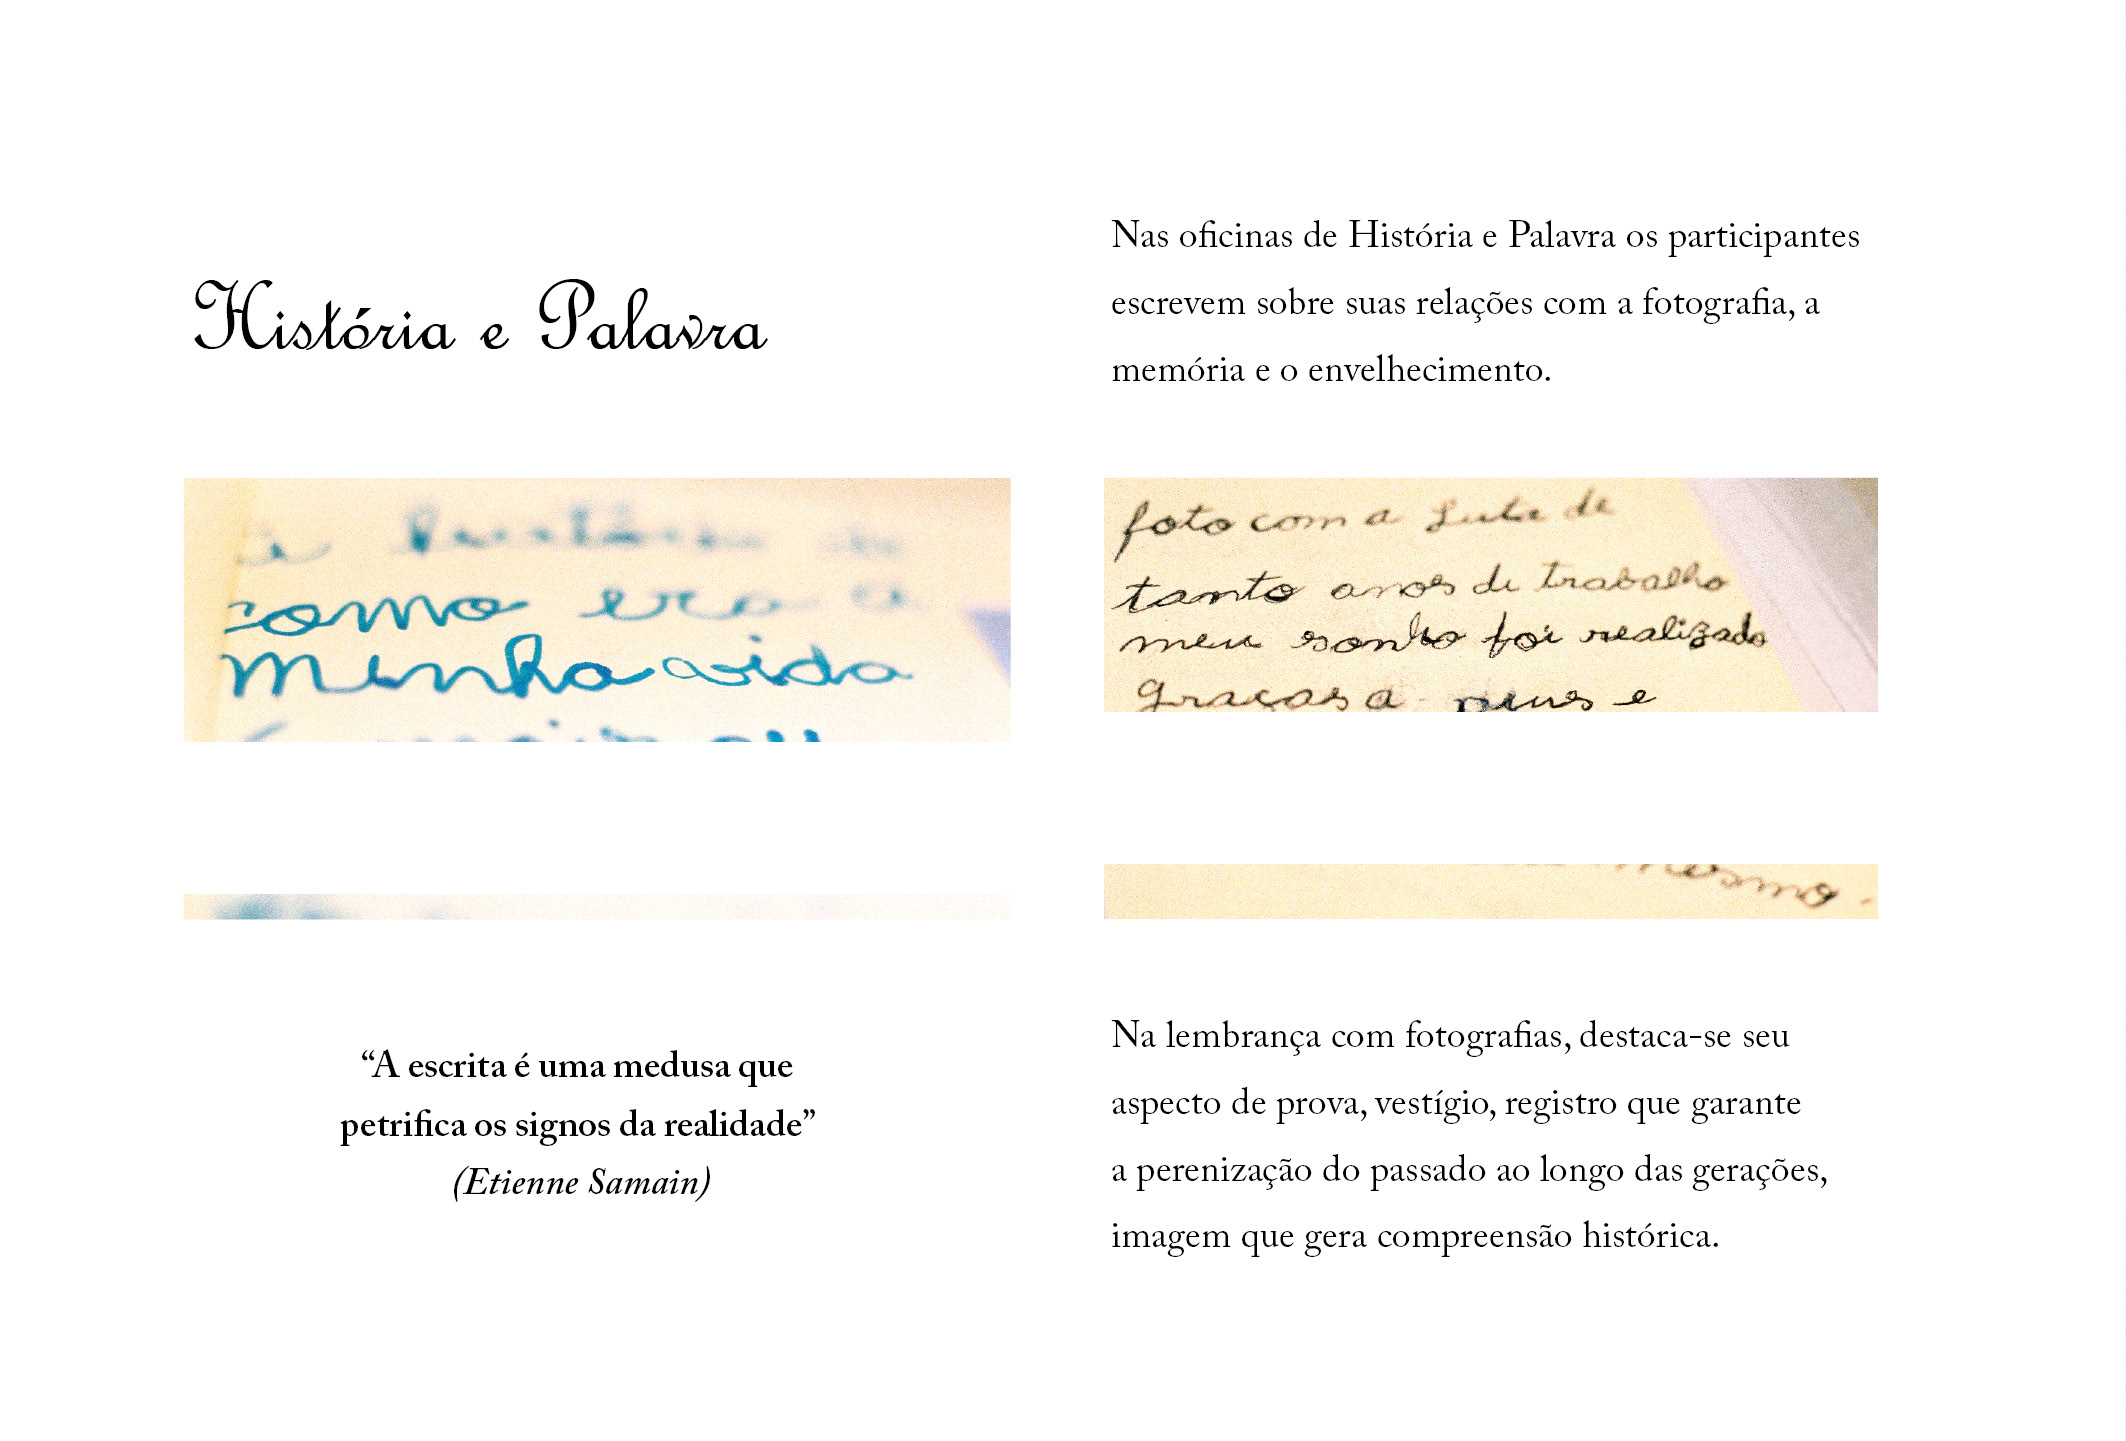 História e Palavra
como era a
minha vida
“A escrita é uma medusa que
petrifica os signos da realidade”
(Etienne Samain)
Nas oficinas de História e Palavra os participantes
escrevem sobre suas relações com a fotografia, a
memória e o envelhecimento.
foto com a luta de
tanto anos de trabalho
meu sonho foi realizado
graças a e
mesmo.
Na lembrança com fotografias, destaca-se seu
aspecto de prova, vestígio, registro que garante
a perenização do passado ao longo das gerações,
imagem que gera compreensão histórica.